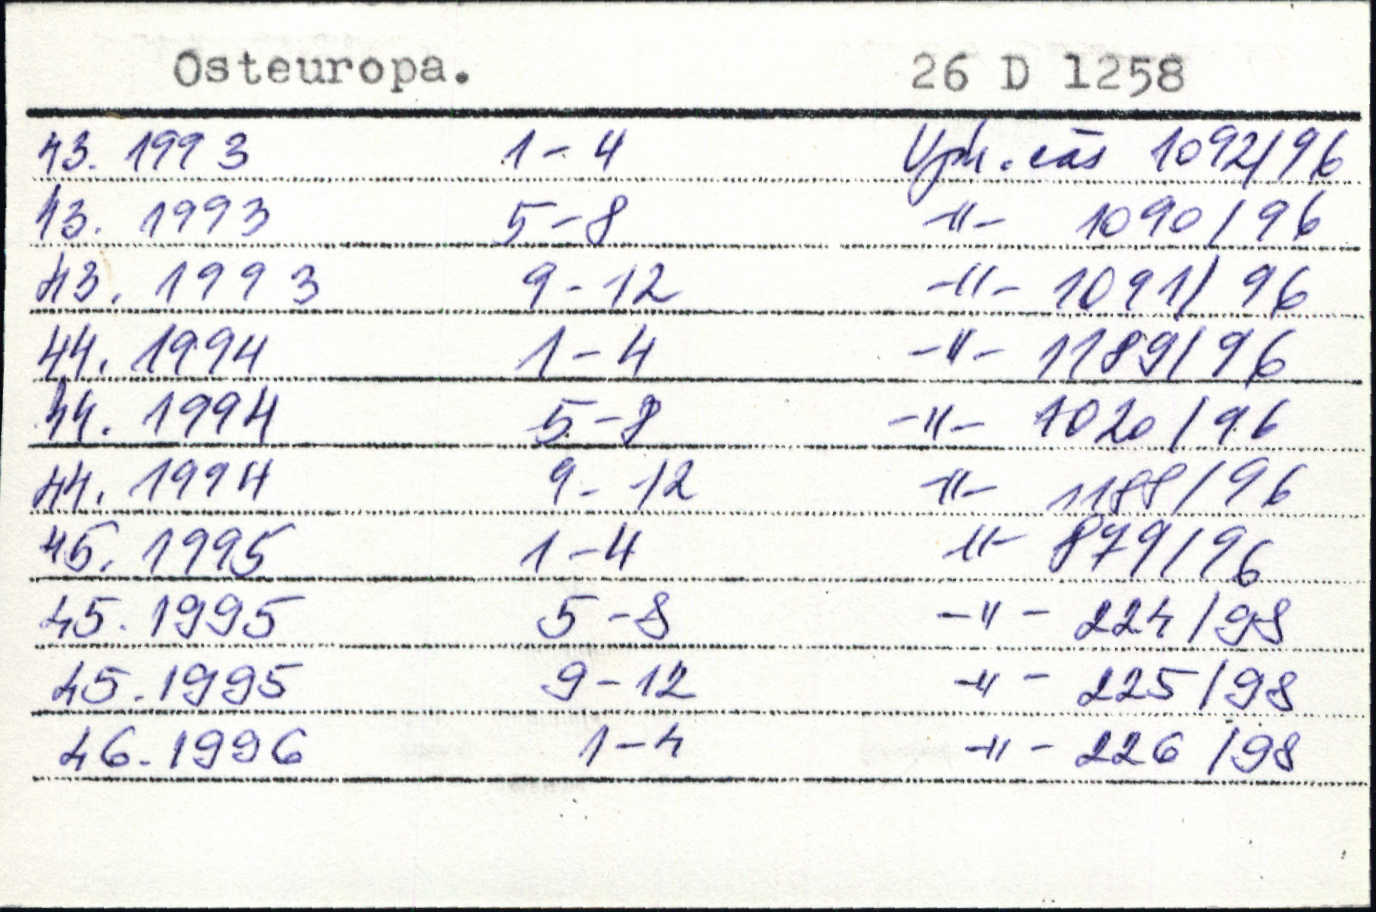 Osteuropa. 26 D 1258
43. 1993 1-4 Vým. čas 1092/96
43. 1993 5-8 -"- 1090/96
43. 1993 9-12 -"- 1091/96
44. 1994 1-4 -"- 1189/96
44. 1994 5-8 -"- 1020/96
44. 1994 9-12 -"- 1188/96
45. 1995 1-4 -"- 879/96
45. 1995 5-8 -"- 224/98
45. 1995 9-12 -"- 225/98
46. 1996 1-4 -"- 226/98